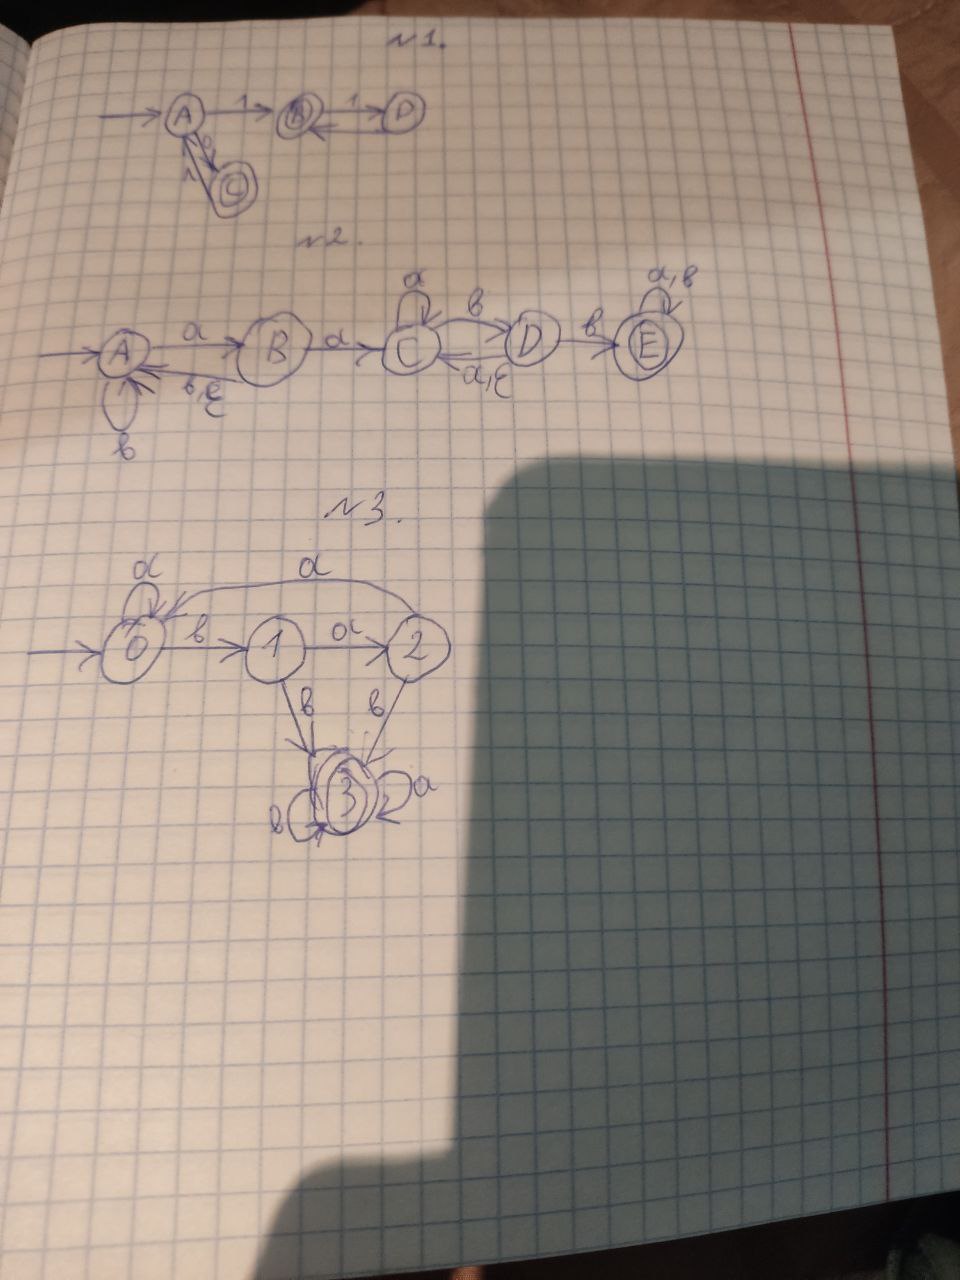 №1.
A 1 B 1 D
0
1 C
№2.
a b a,b
a a b b
A B C D E
b,ε a,ε
b
№3.
a a
0 b 1 a 2
b b
b 3 a